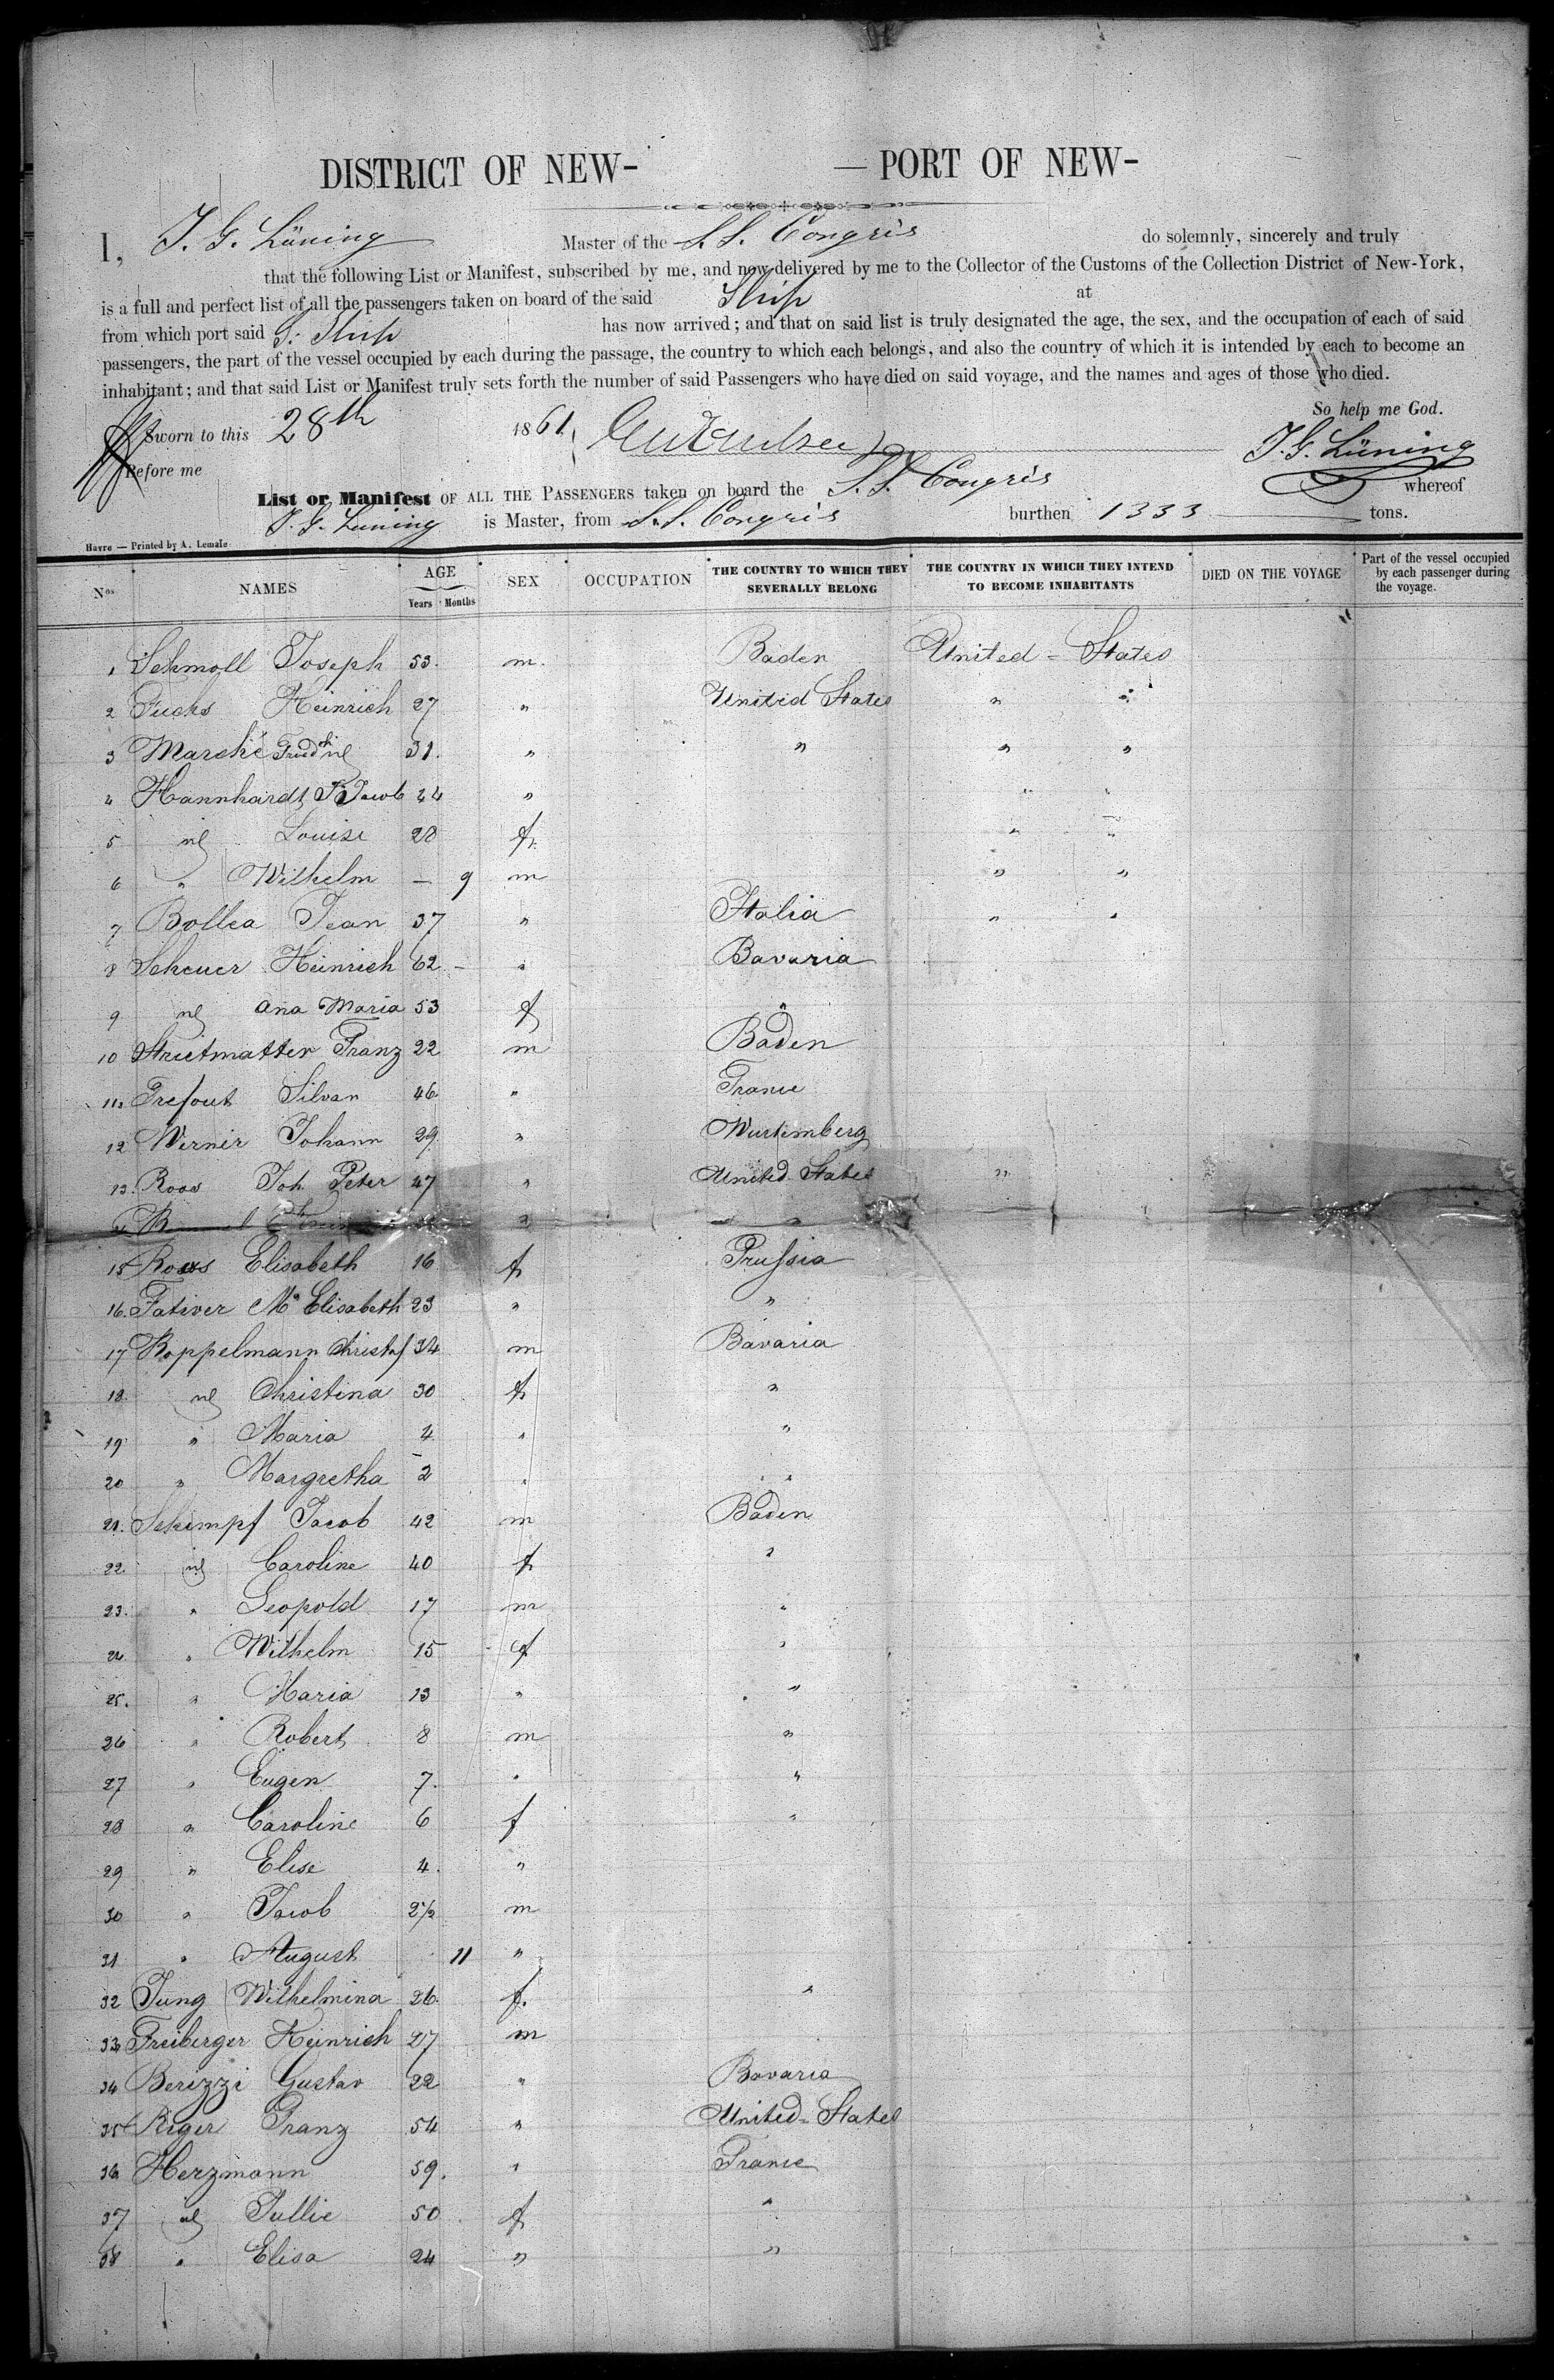 DISTRICT OF NEW- — PORT OF NEW-
I, J. G. Lüning Master of the S. S. Congrès do solemnly, sincerely and truly
that the following List or Manifest, subscribed by me, and now delivered by me to the Collector of the Customs of the Collection District of New-York,
is a full and perfect list of all the passengers taken on board of the said Ship at
from which port said S. Ship has now arrived; and that on said list is truly designated the age, the sex, and the occupation of each of said
passengers, the part of the vessel occupied by each during the passage, the country to which each belongs, and also the country of which it is intended by each to become an
inhabitant; and that said List or Manifest truly sets forth the number of said Passengers who have died on said voyage, and the names and ages of those who died.
So help me God.
Sworn to this 28th 1861. J. G. Lüning
Before me
List or Manifest OF ALL THE PASSENGERS taken on board the S. S. Congrès whereof
J. G. Luning is Master, from S. S. Congrès burthen 1333 tons.
Havre — Printed by A. Lemale
Nos NAMES AGE Years Months SEX OCCUPATION THE COUNTRY TO WHICH THEY SEVERALLY BELONG THE COUNTRY IN WHICH THEY INTEND TO BECOME INHABITANTS DIED ON THE VOYAGE Part of the vessel occupied by each passenger during the voyage.
1 Schmoll Joseph 53. m. Baden United - States
2 Fuchs Heinrich 27 " United States " "
3 Marché 31. " " " "
4 Hannhardt Jacob 44 " " "
5 Louise 28 f. " "
6 " Wilhelm — 9 m " "
7 Bollea Jean 37 " Italia " "
8 Scheuer Heinrich 62 - " Bavaria
9 Ana Maria 53 f "
10 Strietmatter Franz 22 m Baden
11. Silvan 46 " France
12 Werner Johann 29. " Wurtemberg
13. Roos Joh. Peter 47 " United States "
15 Roos Elisabeth 16 f Prussia
16. Fativer Ma Elisabeth 23 " "
17 Roppelmann Christof 34 m Bavaria
18. Christina 30 f "
19 " Maria 4 " "
20 " Margretha 2 " "
21. Schimpf Jacob 42 m Baden
22. Caroline 40 f "
23. " Leopold 17 m "
24 " Wilhelm 15 f "
25. " Maria 13 " "
26 " Robert 8 m "
27 " Eugen 7. " "
28 " Caroline 6 f "
29 " Elise 4. "
30 " Jacob 2½ m
31 " August 11 "
32 Jung Wilhelmina 26. f. "
33 Freiberger Heinrich 27 m
34 Berizzi Gustav 22 " Bavaria
35 Riger Franz 54 " United-States
36 Herzmann 59. " France
37 Jullie 50 f "
38 " Elisa 24 " "